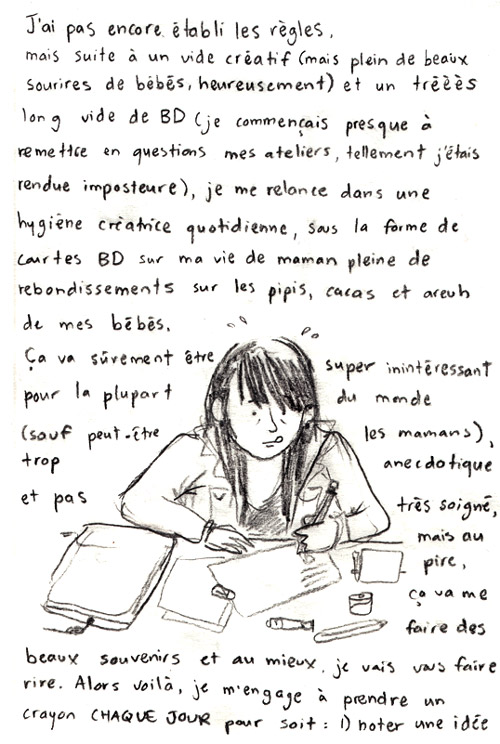 J'ai pas encore établi les règles,
mais suite à un vide créatif (mais plein de beaux
sourires de bébés, heureusement) et un trèèès
long vide de BD (je commençais presque à
remettre en questions mes ateliers, tellement j'étais
rendue imposteure), je me relance dans une
hygiène créatrice quotidienne, sous la forme de
courtes BD sur ma vie de maman pleine de
rebondissements sur les pipis, cacas et areuh
de mes bébés.
Ça va sûrement être super inintéressant
pour la plupart du monde
(sauf peut-être les mamans),
trop anecdotique
et pas très soigné,
mais au
pire,
ça va me
faire des
beaux souvenirs et au mieux, je vais vous faire
rire. Alors voilà, je m'engage à prendre un
crayon CHAQUE JOUR pour soit : 1) noter une idée